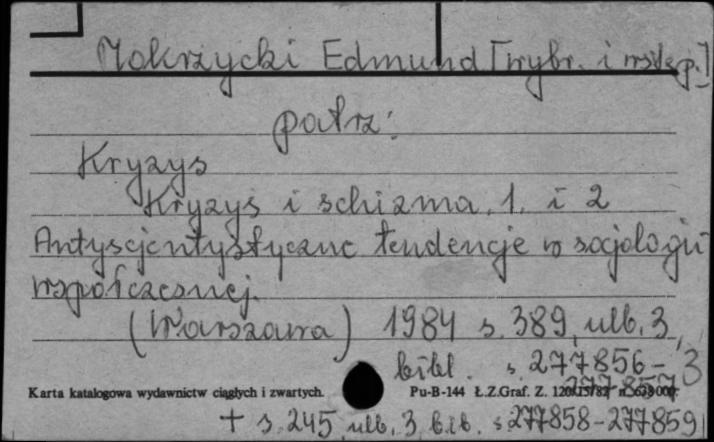 Mokrzycki Edmund [wybr. i wstęp.]
patrz:
Kryzys
Kryzys i schizma. 1. i 2
Antyscjentystyczne tendencje w socjologii
współczesnej.
(Warszawa) 1984 s. 389, ulb. 3,
bibl. s. 277856-3
277857
Karta katalogowa wydawnictw ciągłych i zwartych. Pu-B-144 Ł.Z.Graf. Z.
+ s. 245, ulb. 3 bib. s 277858-277859